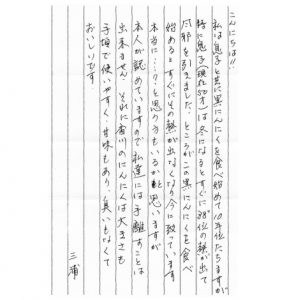 こんにちは!!
私は息子と共に黒にんにくを食べ始めて10年位たちますが
特に息子(現在50才)は冬になるとすぐに38°位の熱が出て
風邪を引きました。ところがこの黒にんにくを食べ
始めるとすぐにその熱が出なくなり今に致っています
本当に…?と思う方もいるかと思いますが
本人が認めていますので私達には手離すことは
出来ません。それに香川のにんにくは大きさも
手頃で使いやすく、甘味もあり、臭いもなくて
おいしいです。
三浦